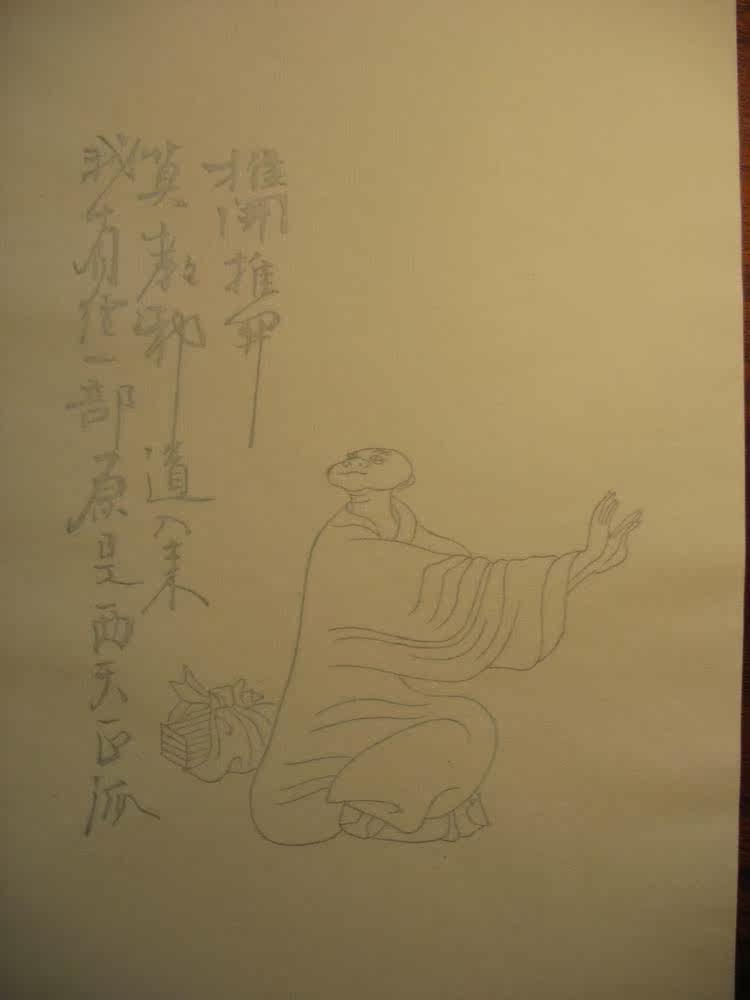 推開推開
莫教邪道入来
我有经一部原是西天正派